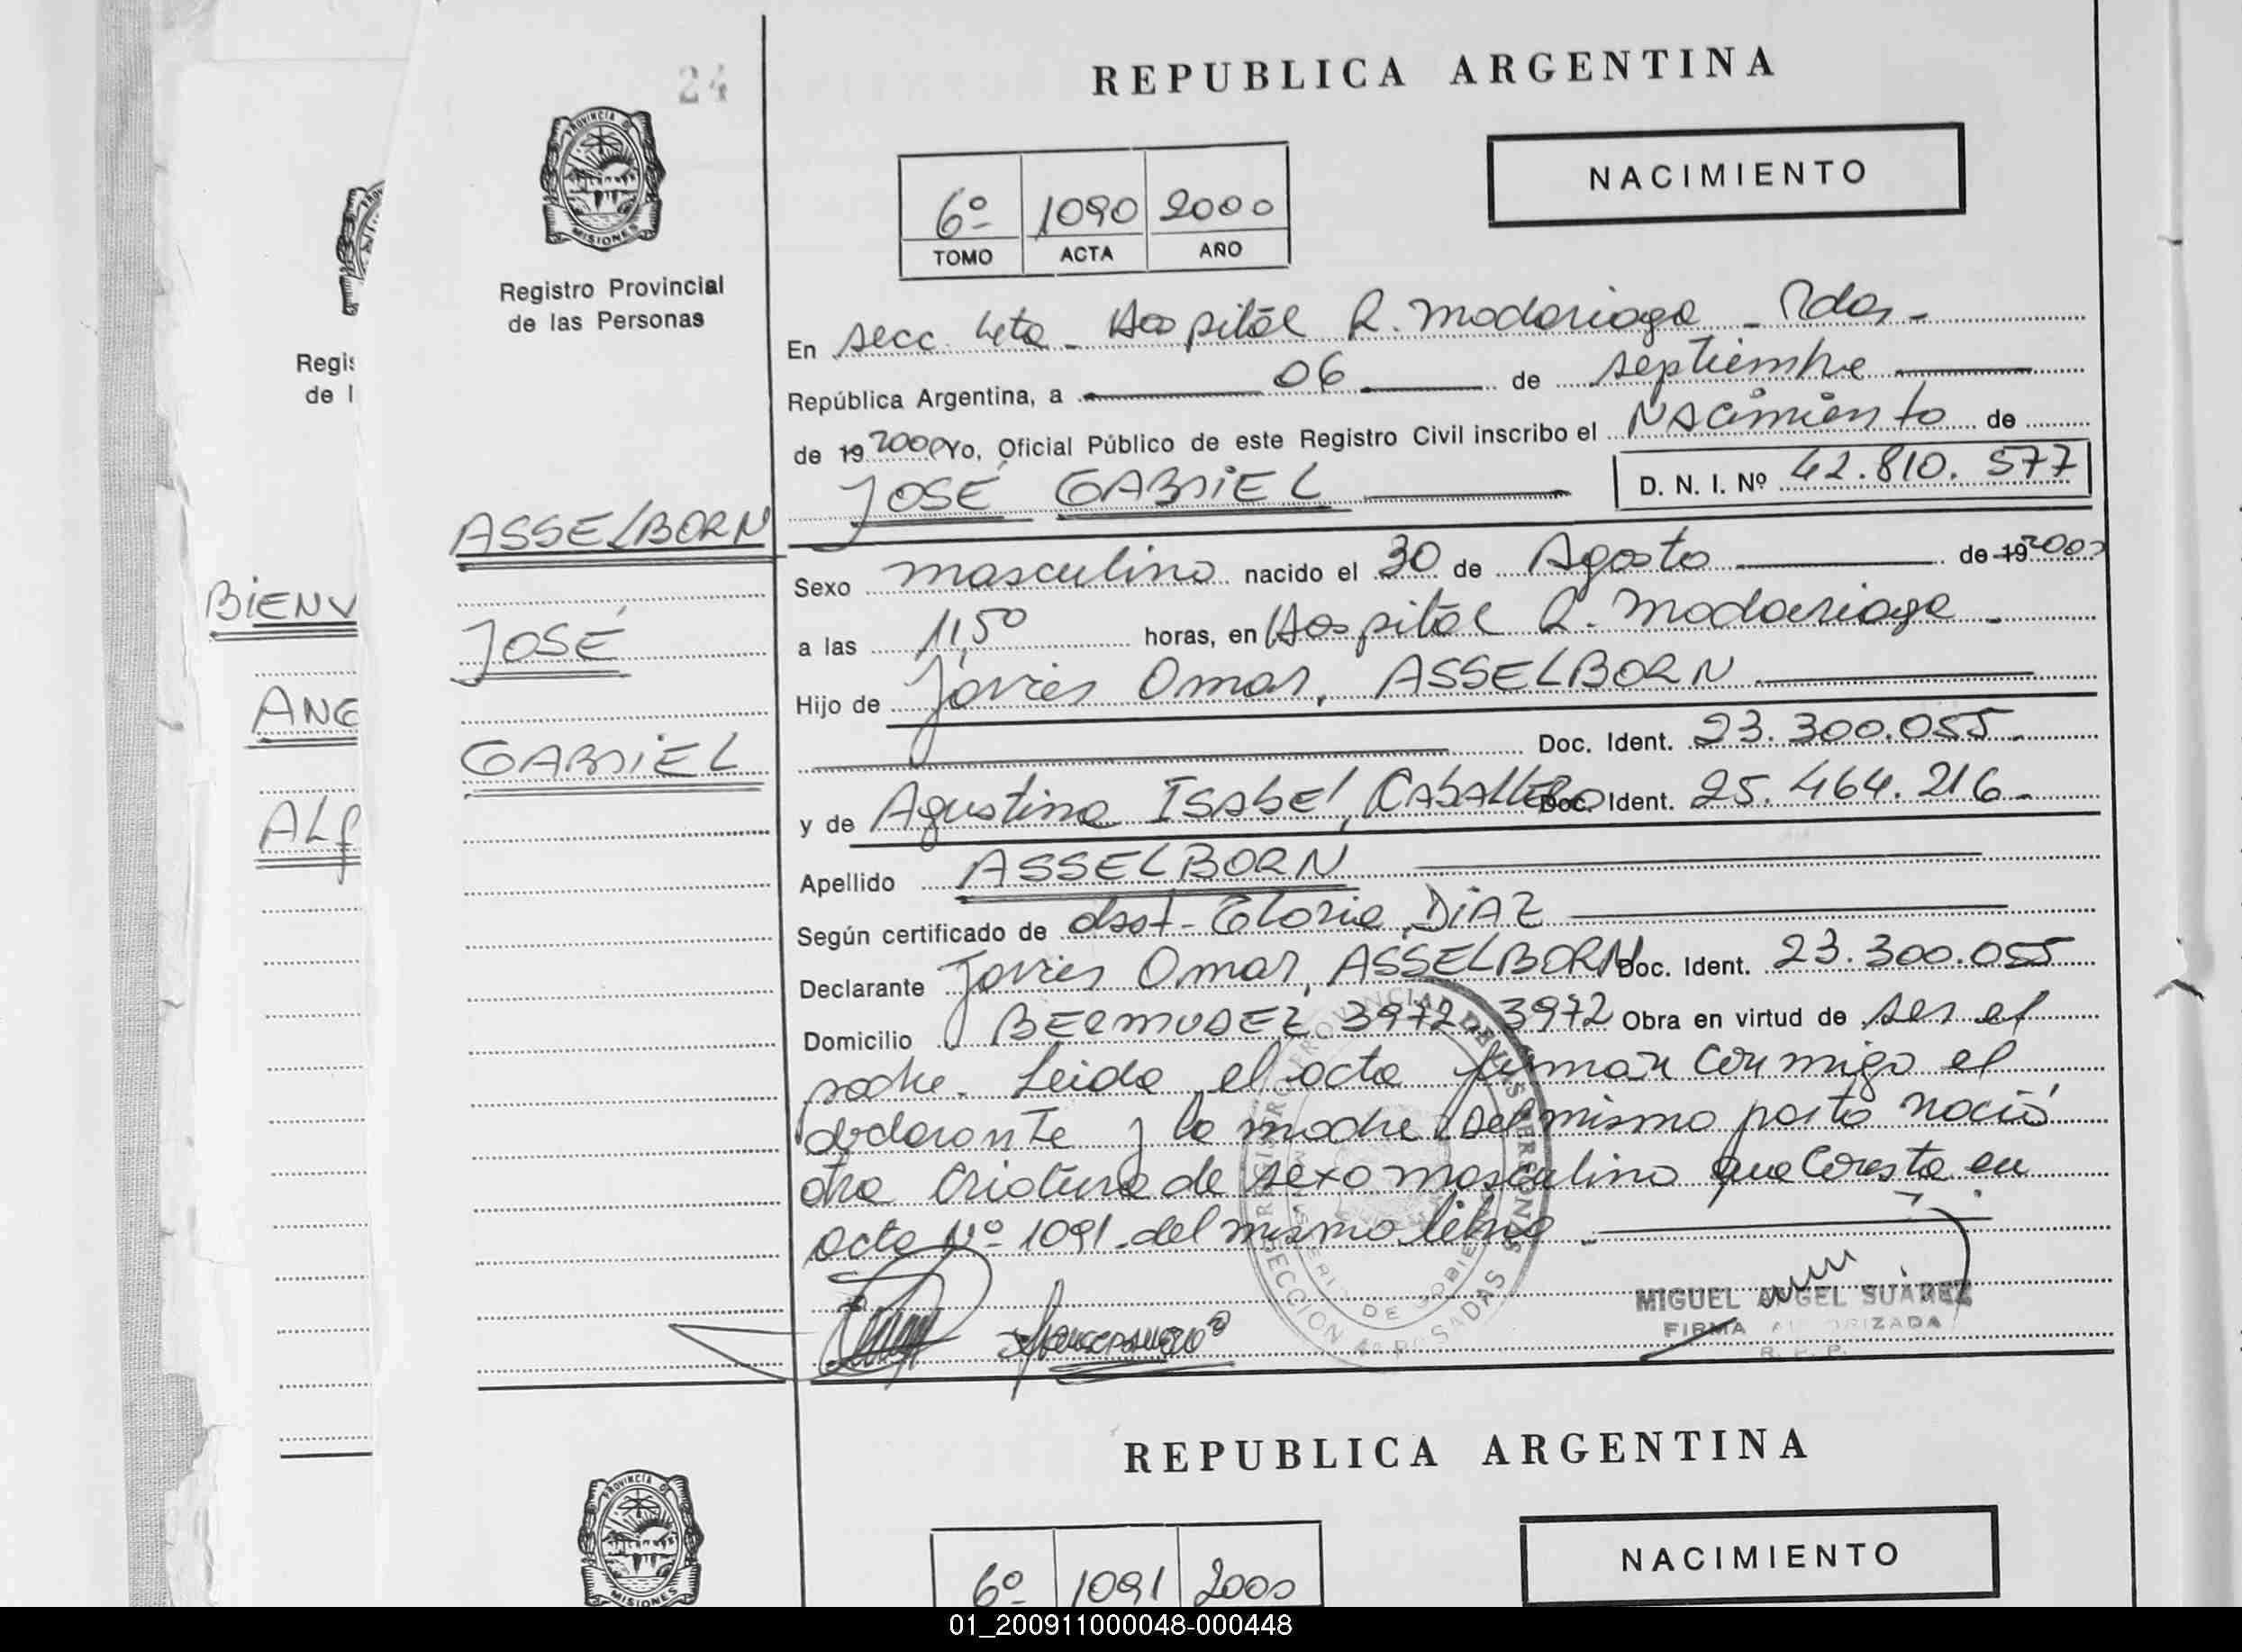 24
REPUBLICA ARGENTINA
PROVINCIA D
MISIONES
NACIMIENTO
6º 1090 2000
TOMO ACTA AÑO
Registro Provincial
de las Personas
Regis
de l
En secc. 4ta - Hospital R. Madariaga - Pdas -
República Argentina, a 06 de septiembre
de 19 2000 Yo, Oficial Público de este Registro Civil inscribo el Nacimiento de
JOSÉ GABRIEL D. N. I. Nº 42.810.577
ASSELBORN
Sexo masculino nacido el 30 de Agosto de 19 2000
BIENV
JOSÉ
a las 11,50 horas, en Hospital R. Madariaga -
Hijo de Javier Omar, ASSELBORN
ANG
Doc. Ident. 23.300.055 -
GABRIEL
y de Agustina ISABEL, CABALLERO Doc. Ident. 25.464.216 -
ALf
Apellido ASSELBORN
Según certificado de obst - Gloria DIAZ
Declarante Javier Omar, ASSELBORN Doc. Ident. 23.300.055
Domicilio BERMUDEZ 3972 - 3972 Obra en virtud de ser el
padre. Leida el acta firman conmigo el
declarante y la madre del mismo parto nació
otra criatura de sexo masculino que consta en
acta Nº 1091 - del mismo libro -
SECCION 4ª POSADAS
MIGUEL ANGEL SUAREZ
FIRMA AUTORIZADA
R. P. P.
REPUBLICA ARGENTINA
PROVINCIA D
MISIONES
NACIMIENTO
6º 1091 2000
01_200911000048-000448